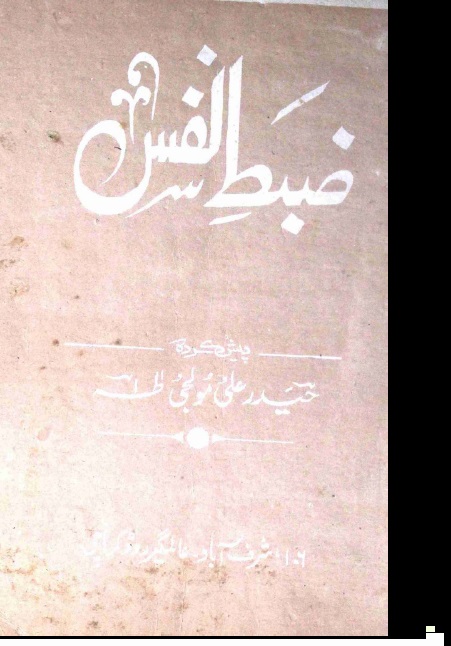 ضبطِ النفس
پیش کردہ
حیدر علی مولجی طٰہٰ
۱۰۶، شرف آباد، عالمگیر روڈ کراچی